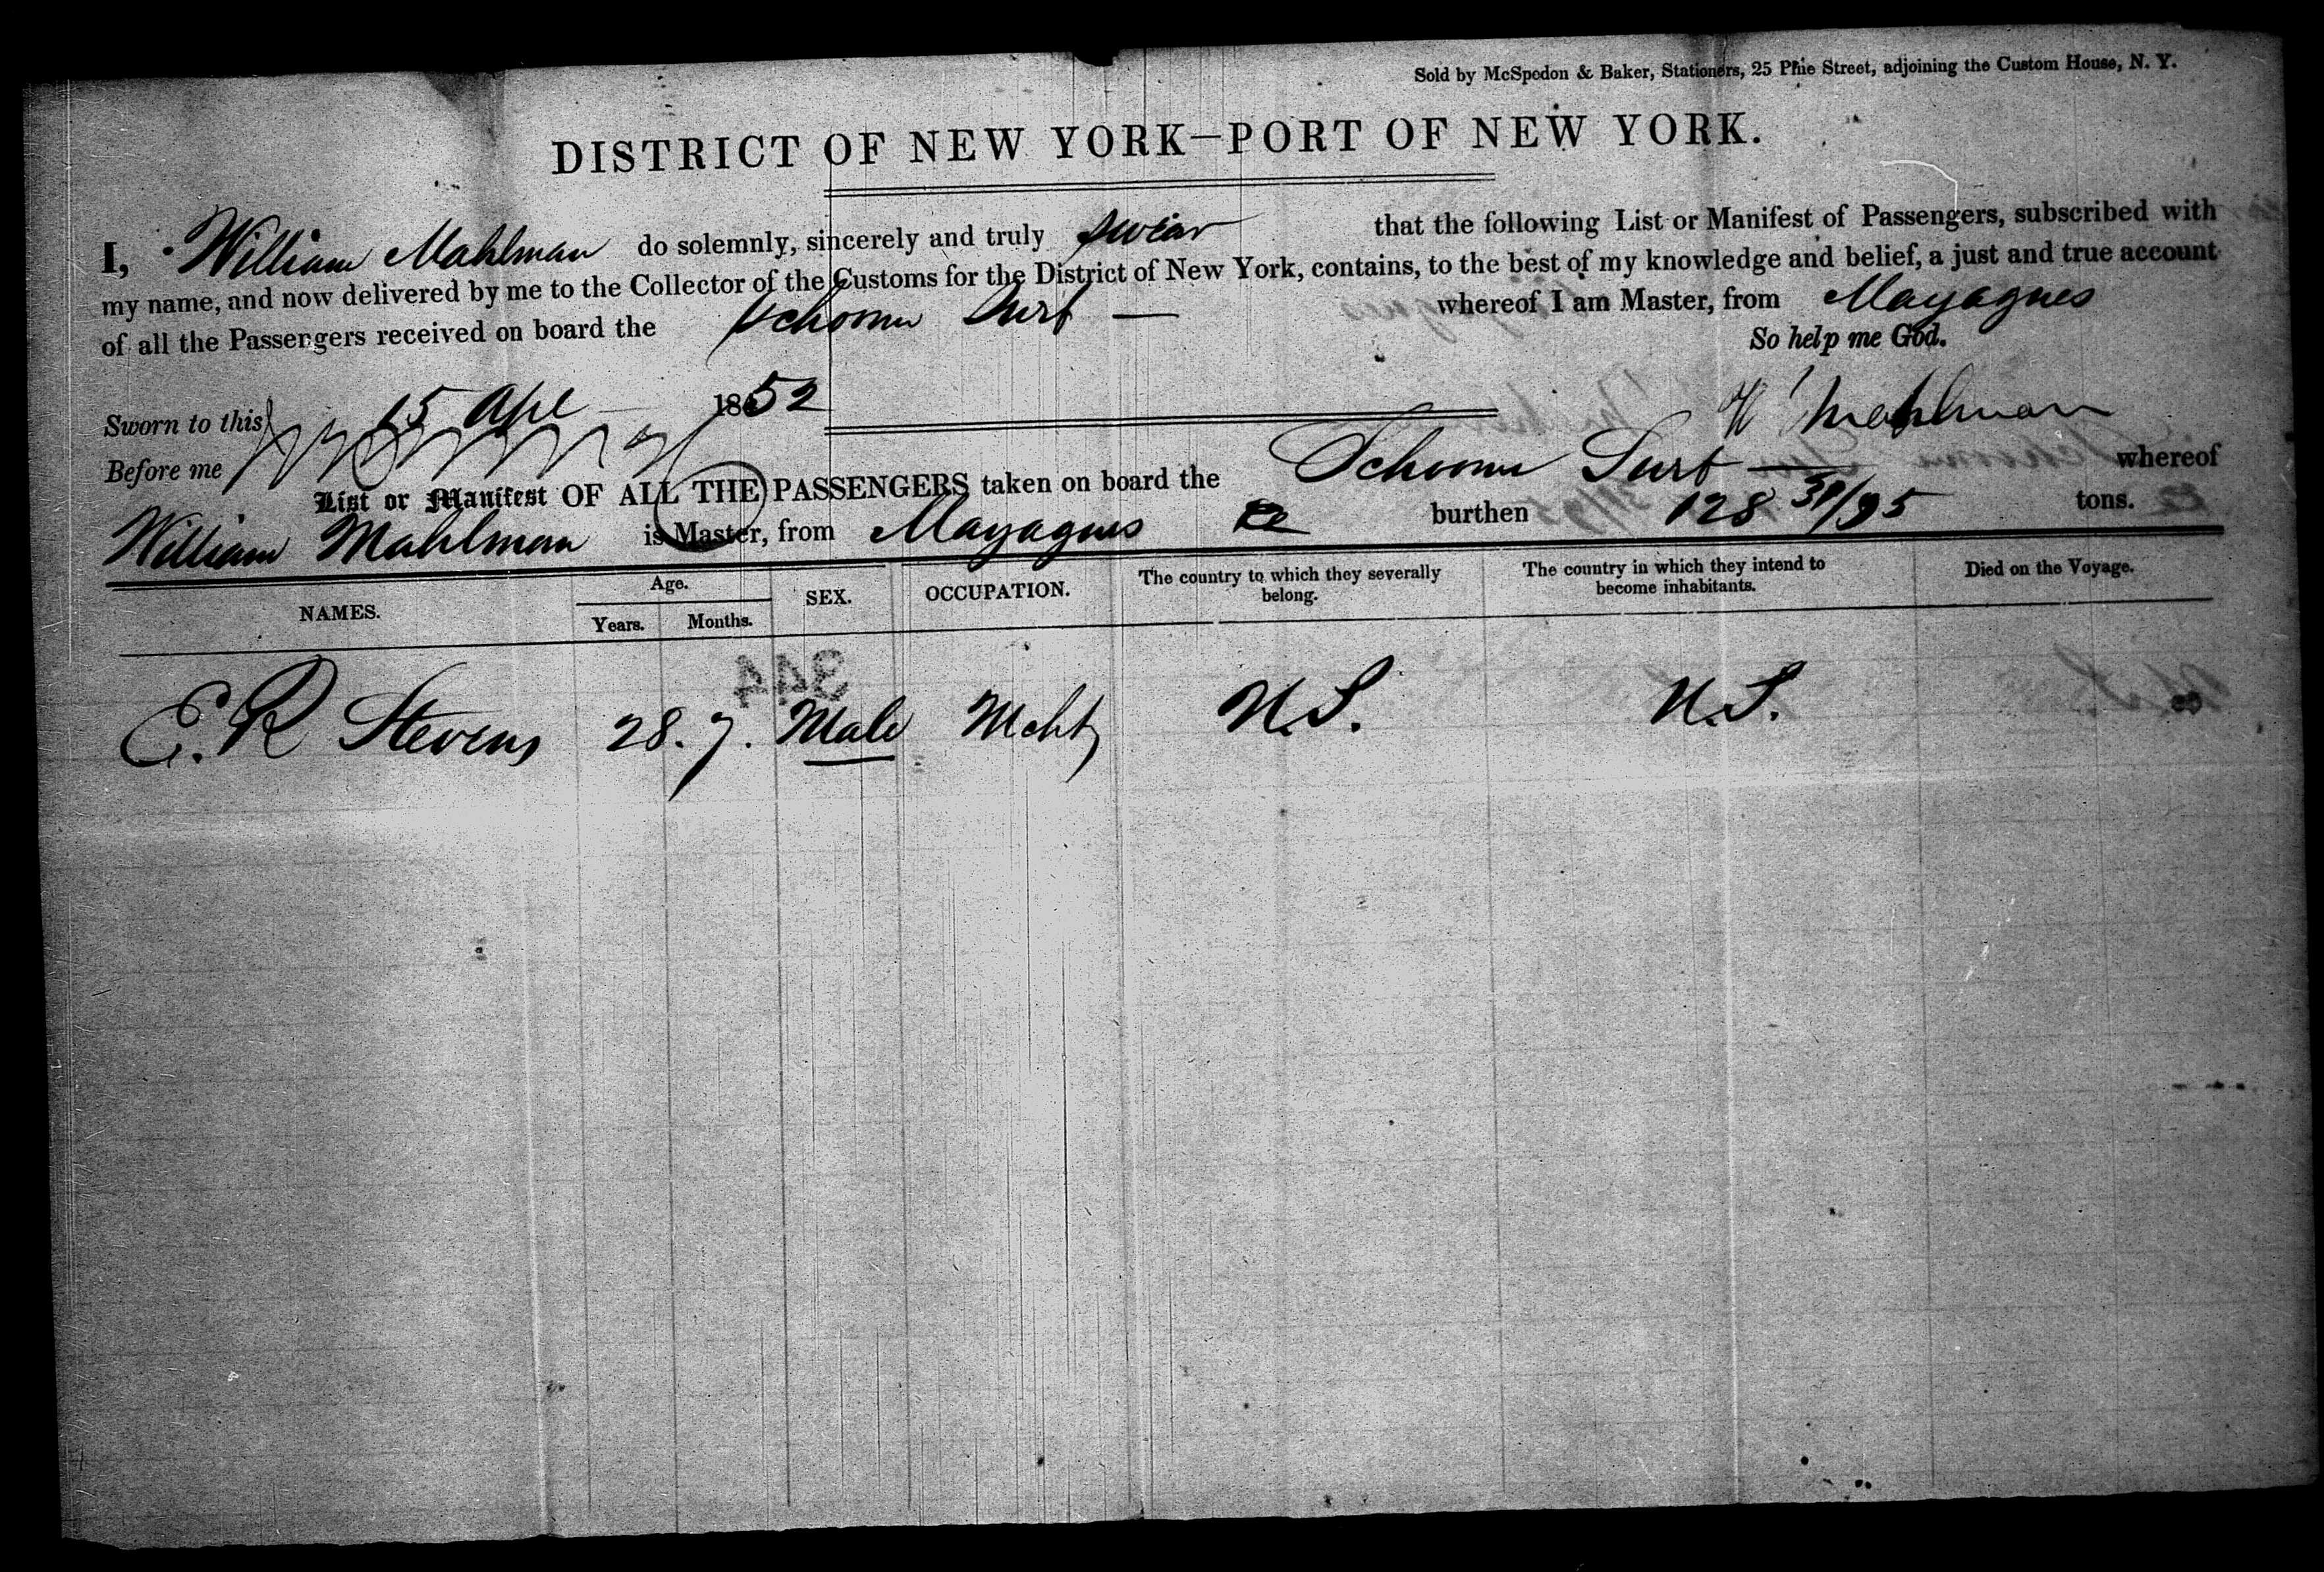 Sold by McSpedon & Baker, Stationers, 25 Pine Street, adjoining the Custom House, N. Y.
DISTRICT OF NEW YORK—PORT OF NEW YORK.
I, William Mahlman do solemnly, sincerely and truly swear that the following List or Manifest of Passengers, subscribed with
my name, and now delivered by me to the Collector of the Customs for the District of New York, contains, to the best of my knowledge and belief, a just and true account
of all the Passengers received on board the Schooner Surf — whereof I am Master, from Mayagues
So help me God.
Sworn to this 15 Apl 1852
W Mahlman
Before me
List or Manifest OF ALL THE PASSENGERS taken on board the Schooner Surf — whereof
William Mahlman is Master, from Mayagues burthen 128 38/95 tons.
NAMES. Age. Years. Months. SEX. OCCUPATION. The country to which they severally belong. The country in which they intend to become inhabitants. Died on the Voyage.
344
E. R Stevens 28. 7. Male Mcht U.S. U.S.